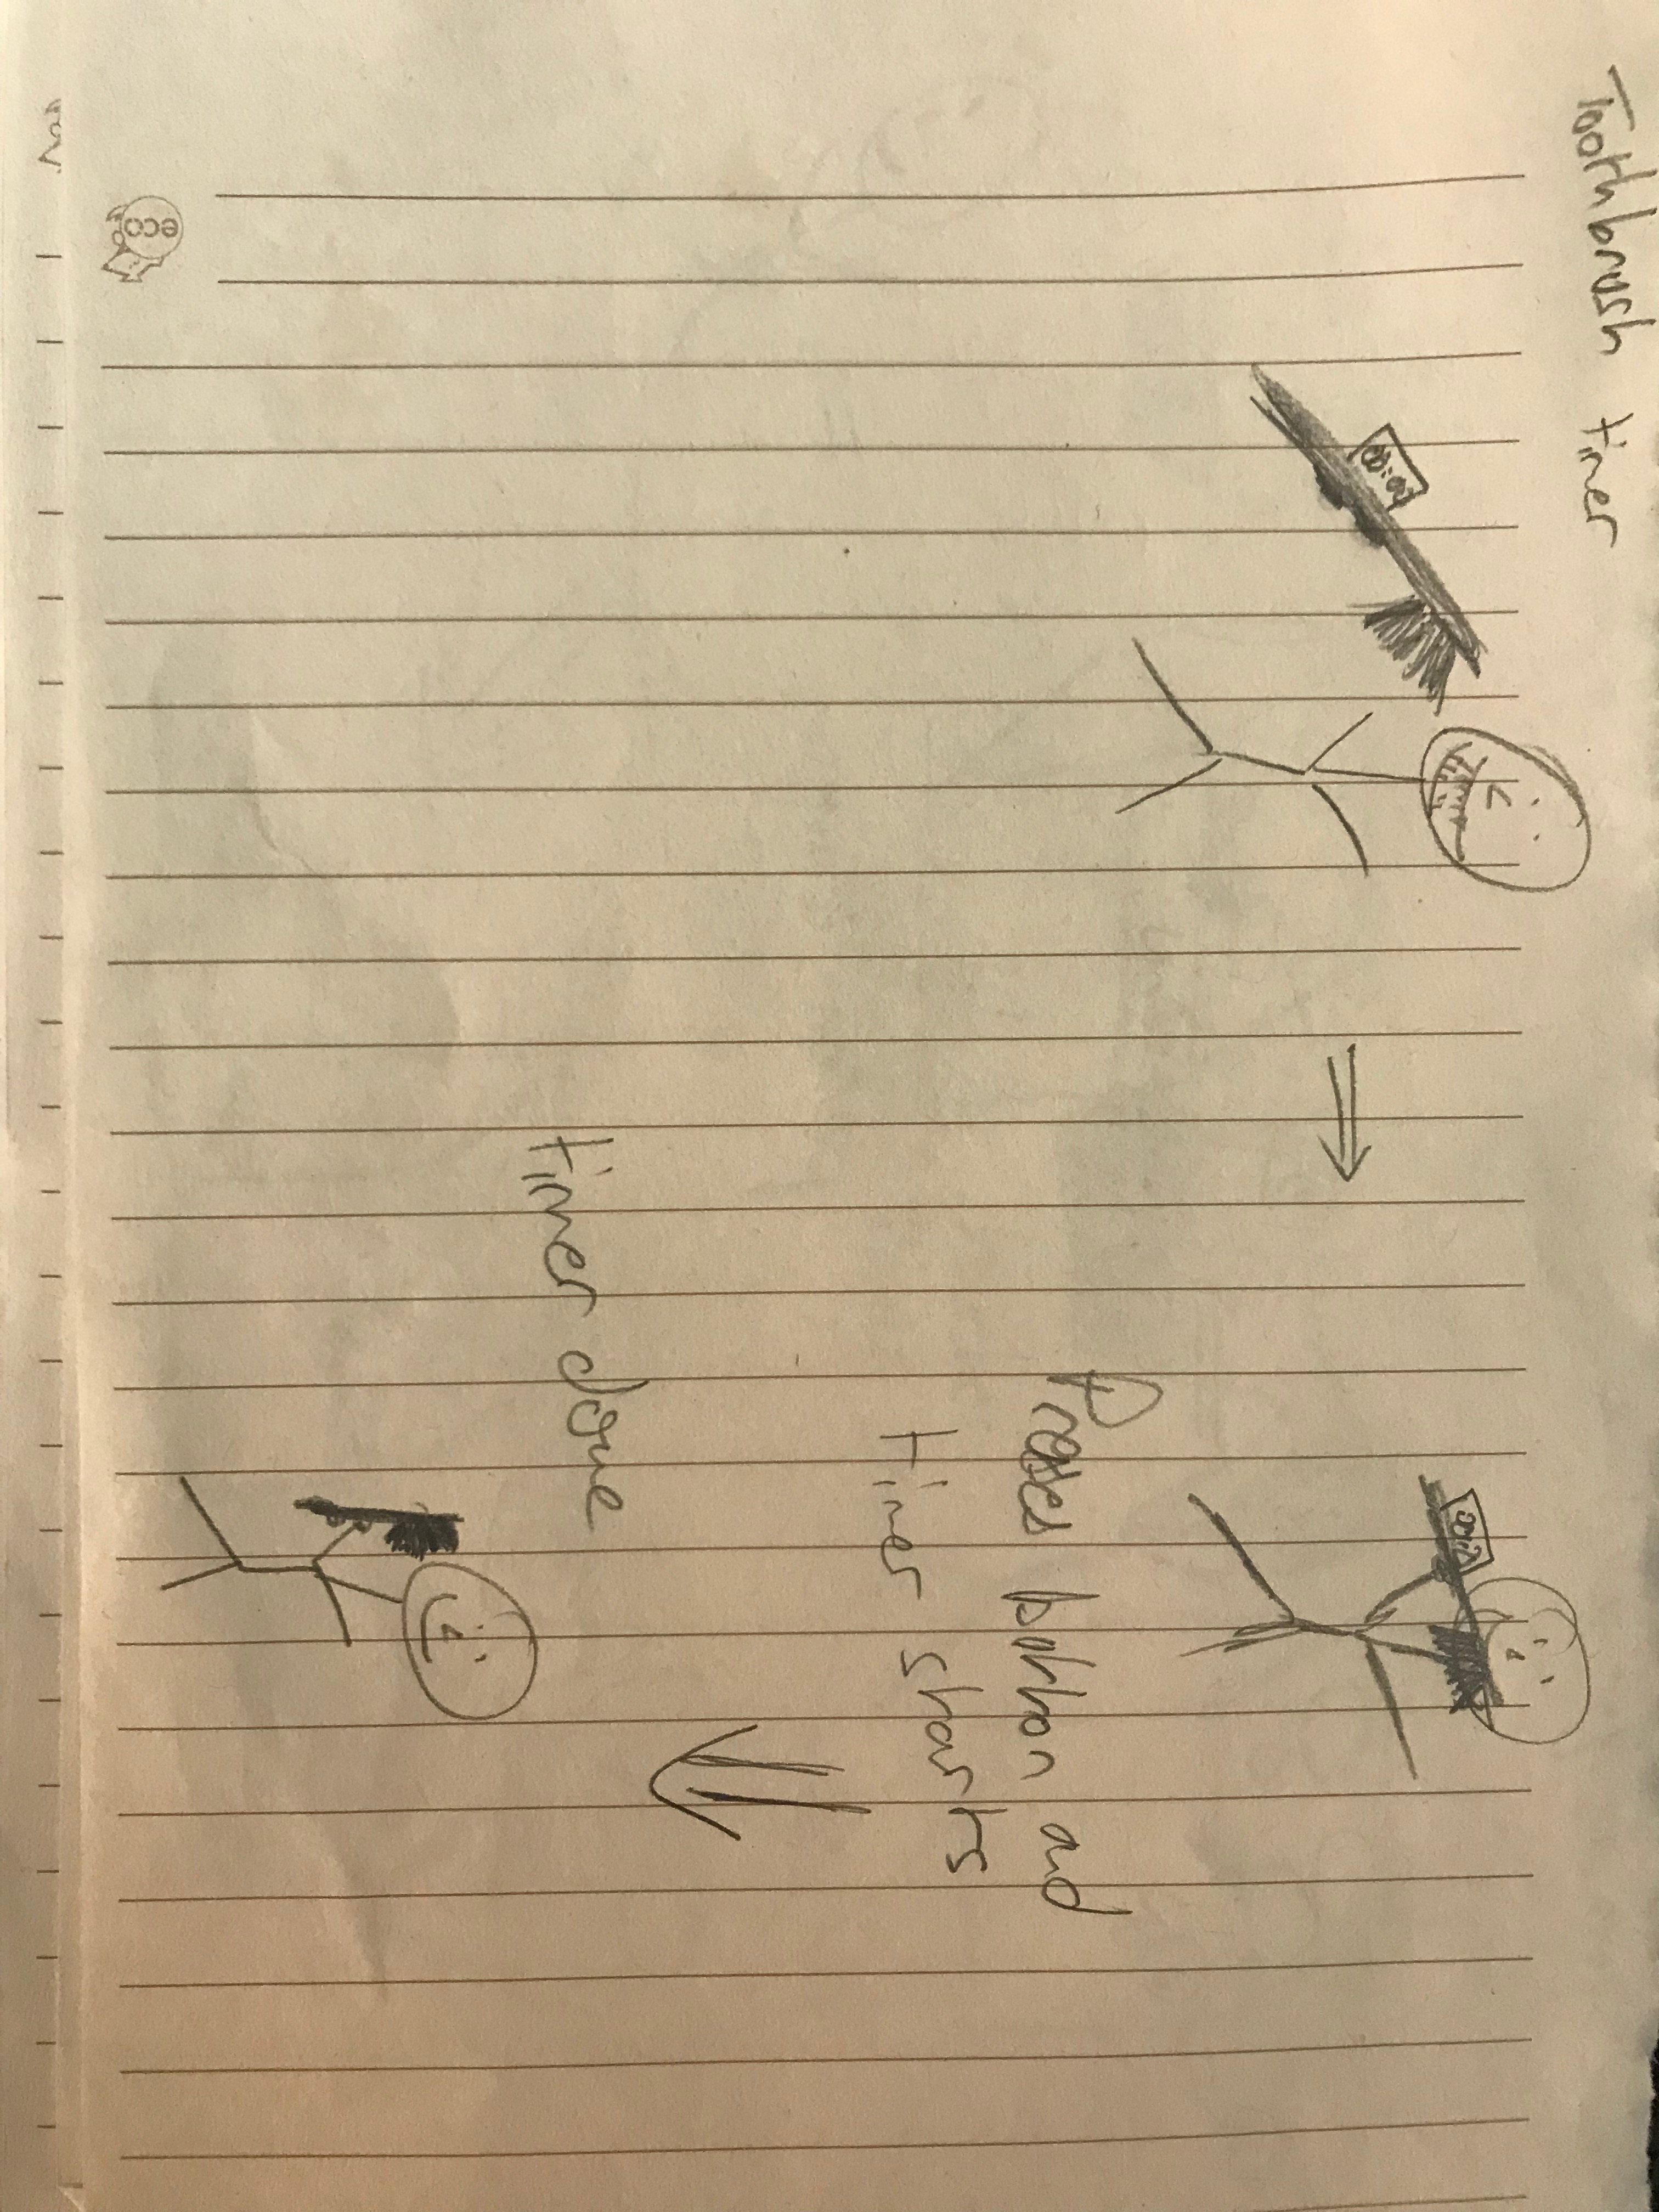 Toothbrush timer
00:00
Presses button and
timer starts
timer done
eco